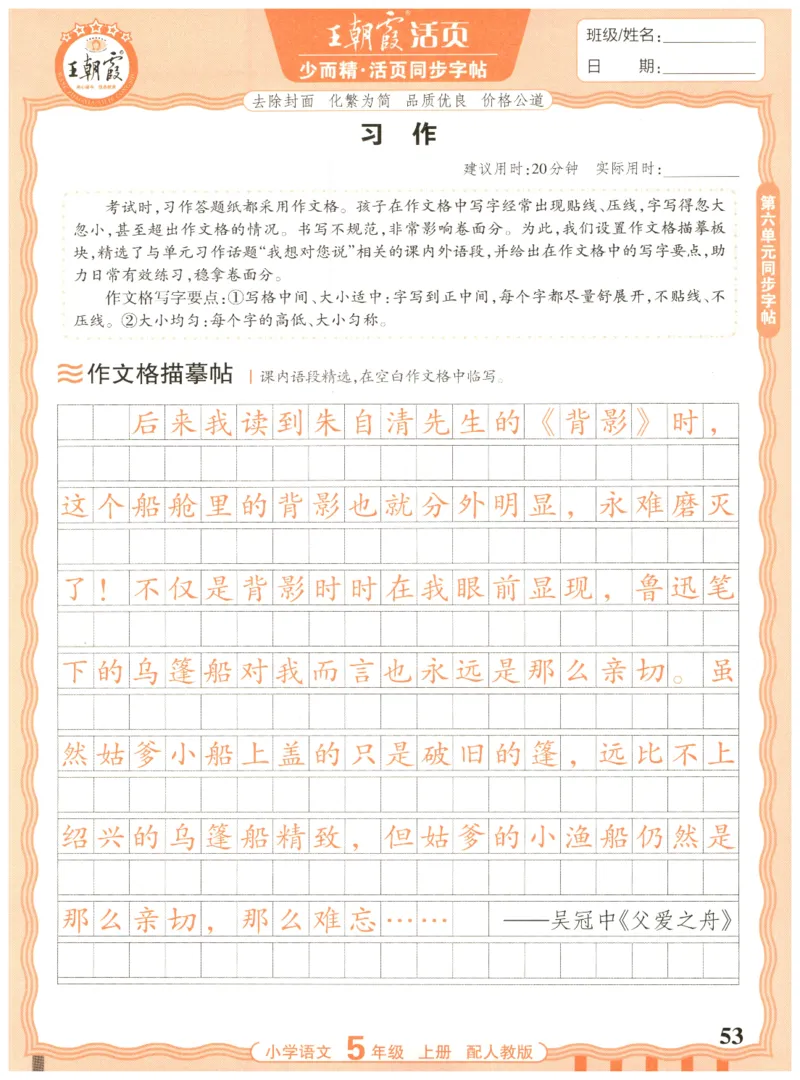 王朝霞
王朝霞活页
少而精·活页同步字帖
班级/姓名：
日 期：
去除封面 化繁为简 品质优良 价格公道
习 作
建议用时：20分钟 实际用时：
考试时，习作答题纸都采用作文格。孩子在作文格中写字经常出现贴线、压线，字写得忽大
忽小，甚至超出作文格的情况。书写不规范，非常影响卷面分。为此，我们设置作文格描摹板
块，精选了与单元习作话题“我想对您说”相关的课内外语段，并给出在作文格中的写字要点，助
力日常有效练习，稳拿卷面分。
作文格写字要点：①写格中间、大小适中：字写到正中间，每个字都尽量舒展开，不贴线、不
压线。②大小均匀：每个字的高低、大小匀称。
第六单元同步字帖
作文格描摹帖 | 课内语段精选，在空白作文格中临写。
后来我读到朱自清先生的《背影》时，
这个船舱里的背影也就分外明显，永难磨灭
了！不仅是背影时时在我眼前显现，鲁迅笔
下的乌篷船对我而言也永远是那么亲切。虽
然姑爹小船上盖的只是破旧的篷，远比不上
绍兴的乌篷船精致，但姑爹的小渔船仍然是
那么亲切，那么难忘…… ——吴冠中《父爱之舟》
53
小学语文 5年级 上册 配人教版